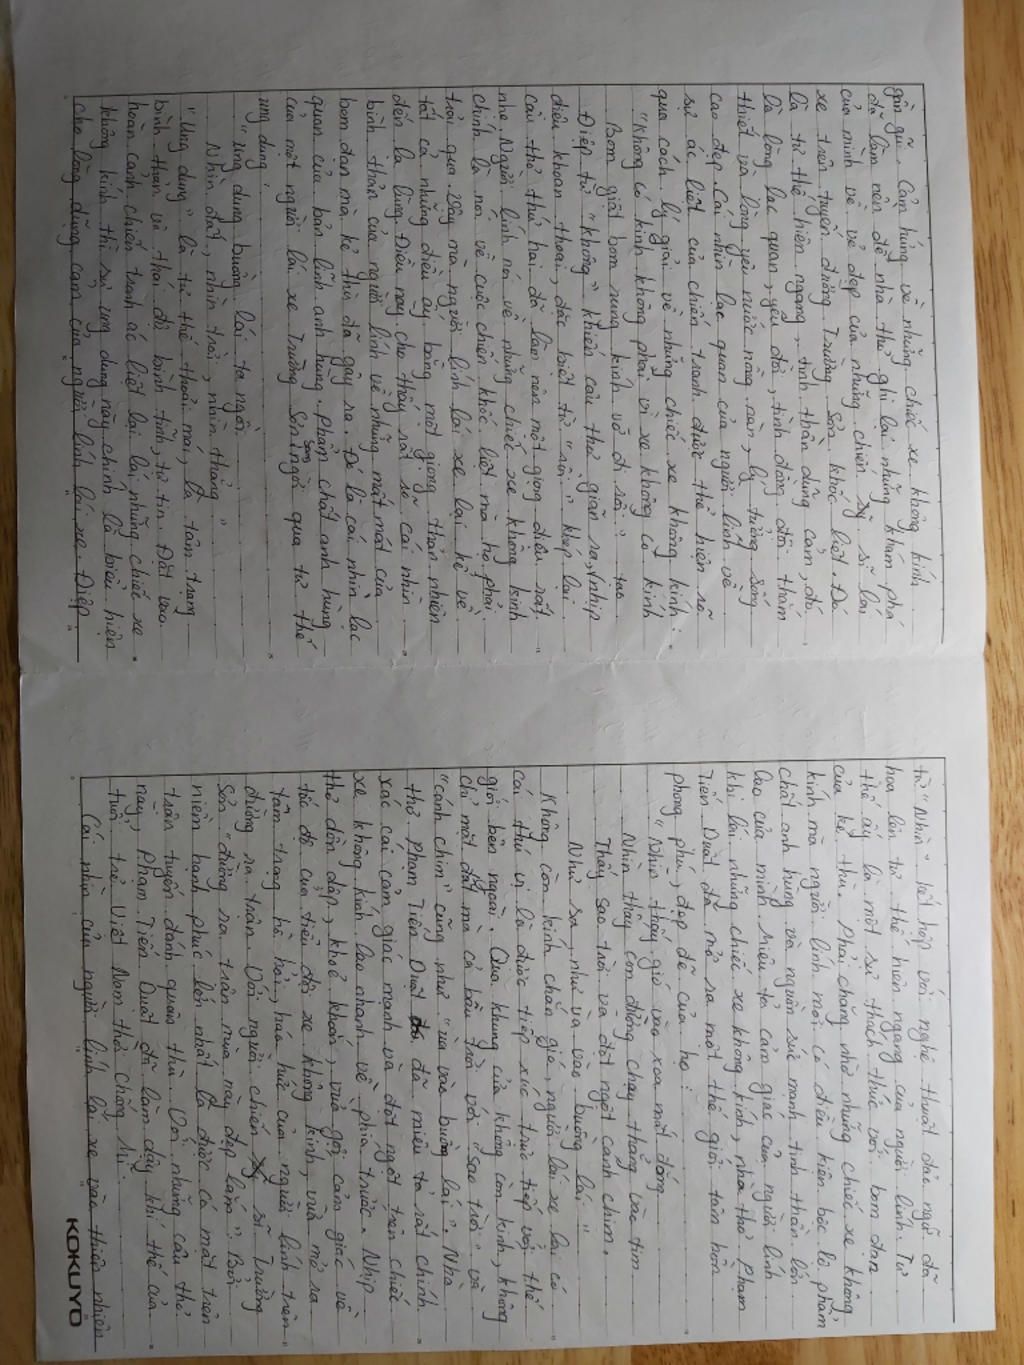 gần gũi. Cảm hứng về những chiếc xe không kính
đã làm nên để nhà thơ ghi lại những khám phá
của mình về vẻ đẹp của những chiến sĩ lái
xe trên tuyến đường Trường Sơn khốc liệt. Đó
là tư thế hiên ngang, tinh thần dũng cảm, đó
là lòng lạc quan, yêu đời, tình đồng đội thắm
thiết và lòng yêu nước nồng nàn, lý tưởng sống
cao đẹp. Cái nhìn lạc quan của người lính về
sự ác liệt của chiến tranh được thể hiện rõ
qua cách lý giải về những chiếc xe không kính:
"Không có kính không phải vì xe không có kính
Bom giật bom rung kính vỡ đi rồi"
Điệp từ "không" khiến câu thơ giãn ra, nhịp
điệu khoan thai, đặc biệt từ "rồi" khép lại
câu thơ thứ hai đã làm nên một giọng điệu rất
nhẹ. Người lính nói về những chiếc xe không kính
chính là nói về cuộc chiến khốc liệt mà họ phải
trải qua. Vậy mà người lính lái xe lại kể về
tất cả những điều ấy bằng một giọng thản nhiên
đến lạ lùng. Điều này cho thấy rất rõ cái nhìn
bình thản của người lính về những mất mát của
bom đạn mà kẻ thù đã gây ra. Đó là cái nhìn lạc
quan của bản lĩnh anh hùng. Phẩm chất anh hùng
của một người lái xe Trường Sơn sáng ngời qua tư thế
ung dung:
"Ung dung buồng lái ta ngồi
Nhìn đất, nhìn trời, nhìn thẳng"
"Ung dung" là tư thế thoải mái, là tâm trạng
bình thản và thái độ bình tĩnh, tự tin. Đặt vào
hoàn cảnh chiến tranh ác liệt lại lái những chiếc xe
không kính thì sự ung dung này chính là biểu hiện
cho lòng dũng cảm của người lính lái xe. Điệp
từ "Nhìn" kết hợp với nghệ thuật đảo ngữ đã
họa lên tư thế hiên ngang của người lính. Tư
thế ấy là một sự thách thức với bom đạn
của kẻ thù. Phải chăng nhờ những chiếc xe không
kính mà người lính mới có điều kiện bộc lộ phẩm
chất anh hùng và nguồn sức mạnh tinh thần lớn
lao của mình. Miêu tả cảm giác của người lính
khi lái những chiếc xe không kính, nhà thơ Phạm
Tiến Duật đã mở ra một thế giới tâm hồn
phong phú, đẹp đẽ của họ:
"Nhìn thấy gió vào xoa mắt đắng
Nhìn thấy con đường chạy thẳng vào tim
Thấy sao trời và đột ngột cánh chim
Như sa, như ùa vào buồng lái"
Không còn kính chắn gió, người lái xe lại có
cái thú vị là được tiếp xúc trực tiếp với thế
giới bên ngoài. Qua khung cửa không còn kính, không
chỉ mặt đất mà cả bầu trời với "sao trời" và
"cánh chim" cũng như "ùa vào buồng lái". Nhà
thơ Phạm Tiến Duật đã miêu tả rất chính
xác cái cảm giác mạnh và đột ngột trên chiếc
xe không kính lao nhanh về phía trước. Nhịp
thơ dồn dập, khoẻ khoắn, vừa gợi cảm giác về
tốc độ của tiểu đội xe không kính, vừa mở ra
tâm trạng hồ hởi, háo hức của người lính trên
đường ra trận. Với người chiến sĩ Trường
Sơn "đường ra trận mùa này đẹp lắm". Bởi
niềm hạnh phúc lớn nhất là được có mặt trên
trận tuyến đánh quân thù. Với những câu thơ
này, Phạm Tiến Duật đã làm dậy khí thế của
tuổi trẻ Việt Nam thời chống Mĩ.
Cái nhìn của người lính lái xe vào thiên nhiên
KOKUYO